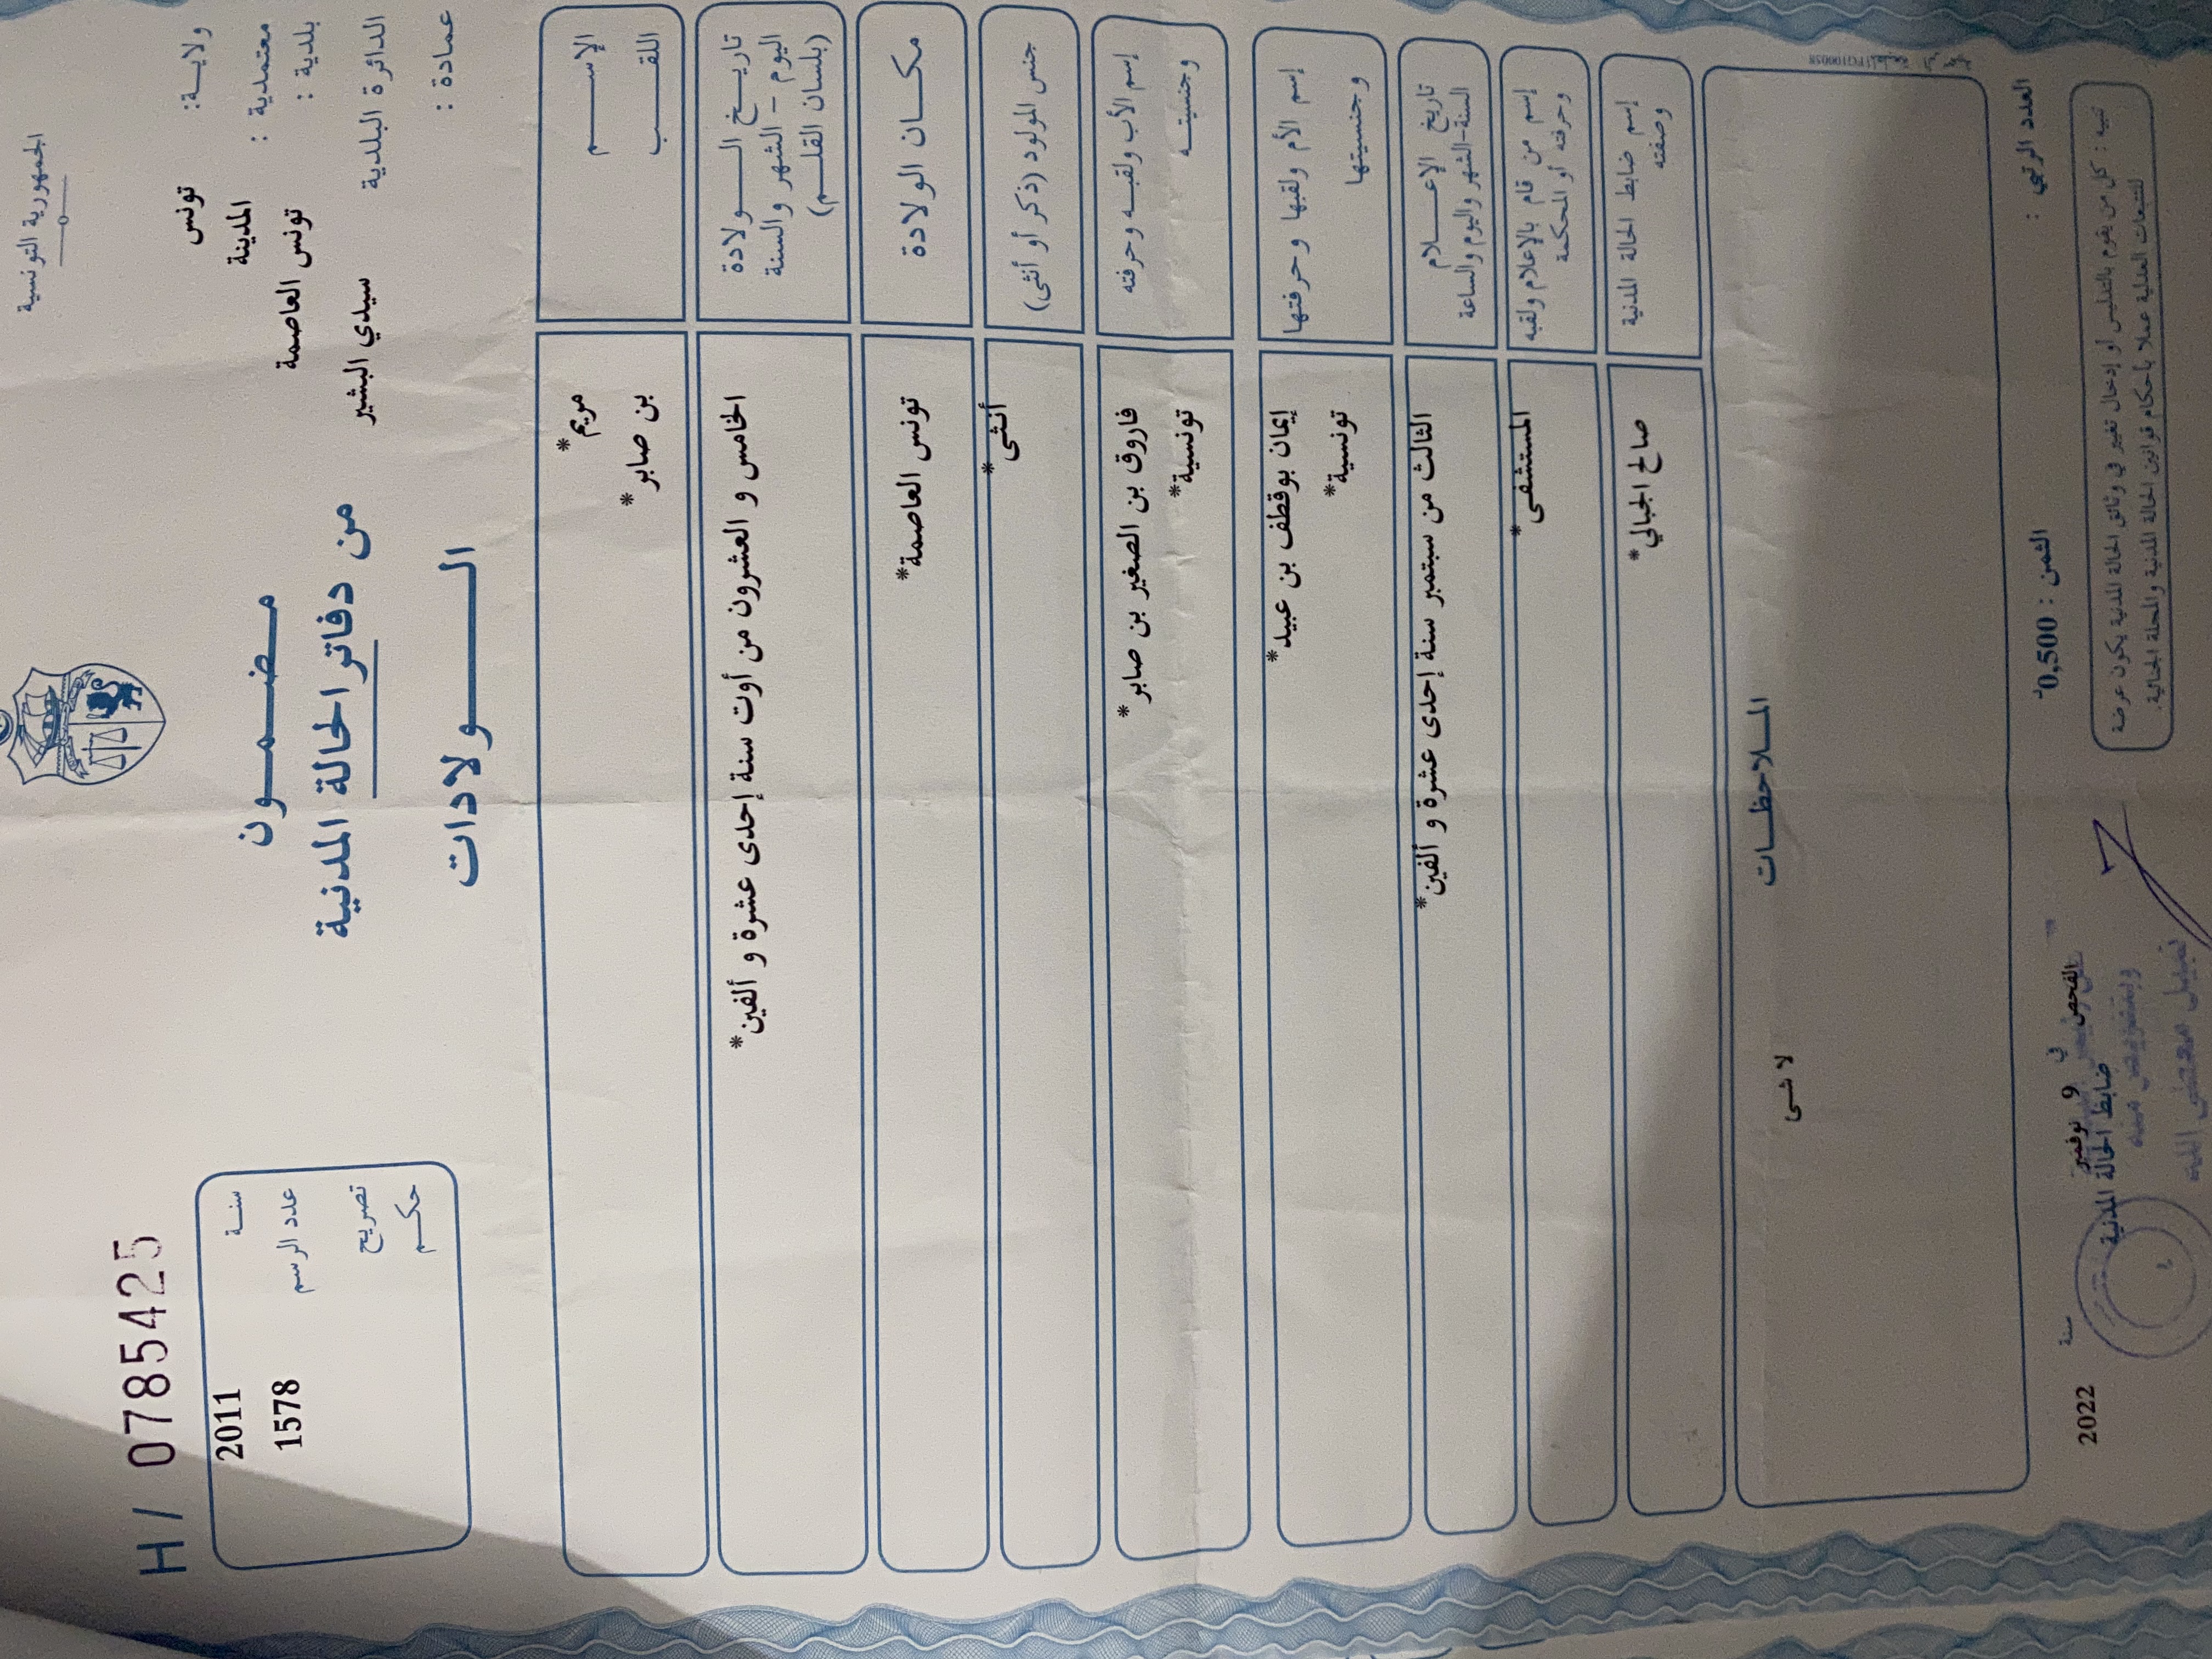 الجمهورية التونسية
H / 0785425
ولايـــة: تونس
معتمدية : المدينة
بلدية : تونس العاصمة
الدائرة البلدية سيدي البشير
عمادة :
مضمون
من دفاتر الحالة المدنية
الولادات
سنة 2011
عدد الرسم 1578
تصريح
حكم
الإسم مريم*
اللقب بن صابر*
تاريخ الولادة
اليوم - الشهر والسنة
(بلسان القلم)
الخامس و العشرون من أوت سنة إحدى عشرة و ألفين*
مكان الولادة تونس العاصمة*
جنس المولود (ذكر أو أنثى) أنثى*
إسم الأب ولقبه وحرفته فاروق بن الصغير بن صابر*
وجنسيته تونسية*
إسم الأم ولقبها وحرفتها إيمان بوقطف بن عبيد*
وجنسيتها تونسية*
تاريخ الإعلام
السنة-الشهر واليوم والساعة
الثالث من سبتمبر سنة إحدى عشرة و ألفين*
إسم من قام بالإعلام ولقبه
وحرفته أو المحكمة
المستشفى*
إسم ضابط الحالة المدنية
وصفته
صالح الجبالي*
الملاحظات
لا شى
العدد الرتبي :
الثمن : 0,500د
الفحص في 9 نوفمبر سنة 2022
ضابط الحالة المدنية
تنبيه : كل من يقوم بالتدليس أو إدخال تغيير في وثائق الحالة المدنية يكون عرضة
للتتبعات العدلية عملا بأحكام قوانين الحالة المدنية والمجلة الجنائية.